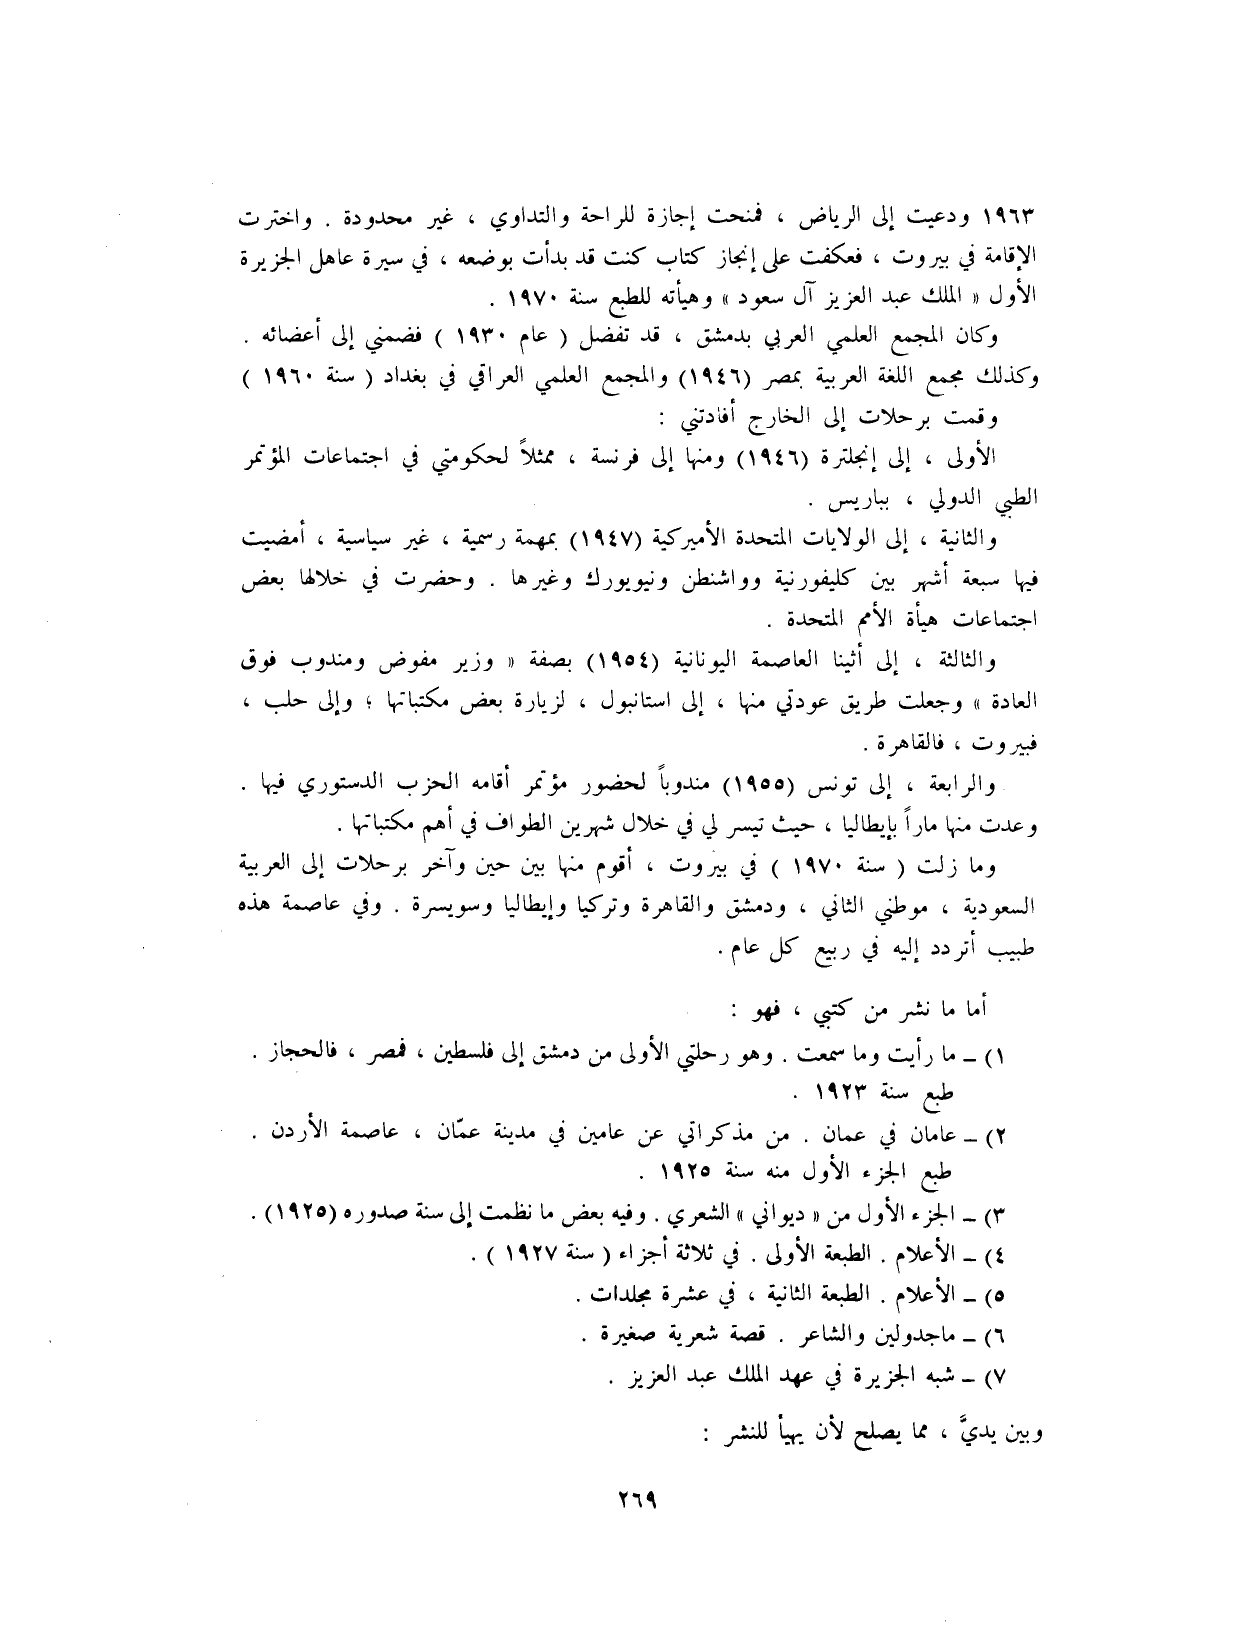 ١٩٦٣ ودعيت إلى الرياض ، فمنحت إجازة للراحة والتداوي ، غير محدودة . واخترت
الإقامة في بيروت ، فعكفت على إنجاز كتاب كنت قد بدأت بوضعه ، في سيرة عاهل الجزيرة
الأول « الملك عبد العزيز آل سعود » وهيأته للطبع سنة ١٩٧٠ .
وكان المجمع العلمي العربي بدمشق ، قد تفضل ( عام ١٩٣٠ ) فضمني إلى أعضائه .
وكذلك مجمع اللغة العربية بمصر (١٩٤٦) والمجمع العلمي العراقي في بغداد ( سنة ١٩٦٠ )
وقمت برحلات إلى الخارج أفادتني :
الأولى ، إلى إنجلترة (١٩٤٦) ومنها إلى فرنسة ، ممثلاً لحكومتي في اجتماعات المؤتمر
الطبي الدولي ، بباريس .
والثانية ، إلى الولايات المتحدة الأميركية (١٩٤٧) بمهمة رسمية ، غير سياسية ، أمضيت
فيها سبعة أشهر بين كليفورنية وواشنطن ونيويورك وغيرها . وحضرت في خلالها بعض
اجتماعات هيأة الأمم المتحدة .
والثالثة ، إلى أثينا العاصمة اليونانية (١٩٥٤) بصفة « وزير مفوض ومندوب فوق
العادة » وجعلت طريق عودتي منها ، إلى استانبول ، لزيارة بعض مكتباتها ؛ وإلى حلب ،
فبيروت ، فالقاهرة .
والرابعة ، إلى تونس (١٩٥٥) مندوباً لحضور مؤتمر أقامه الحزب الدستوري فيها .
وعدت منها ماراً بإيطاليا ، حيث تيسر لي في خلال شهرين الطواف في أهم مكتباتها .
وما زلت ( سنة ١٩٧٠ ) في بيروت ، أقوم منها بين حين وآخر برحلات إلى العربية
السعودية ، موطني الثاني ، ودمشق والقاهرة وتركيا وإيطاليا وسويسرة . وفي عاصمة هذه
طبيب أتردد إليه في ربيع كل عام .
أما ما نشر من كتبي ، فهو :
١) ــ ما رأيت وما سمعت . وهو رحلتي الأولى من دمشق إلى فلسطين ، فمصر ، فالحجاز .
طبع سنة ١٩٢٣ .
٢) ــ عامان في عمان . من مذكراتي عن عامين في مدينة عمّان ، عاصمة الأردن .
طبع الجزء الأول منه سنة ١٩٢٥ .
٣) ــ الجزء الأول من « ديواني » الشعري . وفيه بعض ما نظمت إلى سنة صدوره (١٩٢٥) .
٤) ــ الأعلام . الطبعة الأولى . في ثلاثة أجزاء ( سنة ١٩٢٧ ) .
٥) ــ الأعلام . الطبعة الثانية ، في عشرة مجلدات .
٦) ــ ماجدولين والشاعر . قصة شعرية صغيرة .
٧) ــ شبه الجزيرة في عهد الملك عبد العزيز .
وبين يديَّ ، مما يصلح لأن يهيأ للنشر :
٢٦٩